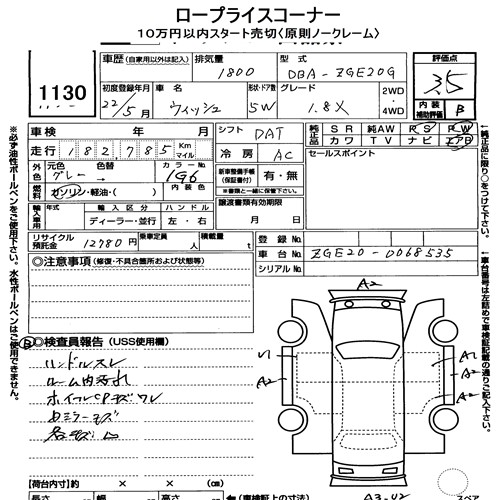 ロープライスコーナー
10万円以内スタート売切〈原則ノークレーム〉
1130
車歴 (自家用以外は記入) 排気量 1800 型式 DBA-ZGE20G 評価点 3.5
初度登録年月 22/5月 車名 ウィッシュ 形状・ドア数 5W グレード 1.8X 2WD・4WD 内装補助評価 B
車検 年 月 シフト DAT 純正品 SR 純AW RS PW
走行 182,785 Km マイル カワ TV ナビ エアB
外色 元色 グレー 色替→ カラーNo. 1G6 内装色 冷房 AC セールスポイント
燃料 ガソリン・軽油・( ) 新車整備手帳(保証書付) 有・無
(書類と一緒に保管して下さい)
輸入車用 年式 輸入区分 ハンドル 譲渡書類有効期限
ディーラー・並行 右・左 月 日
リサイクル預託金 12780円 乗車定員 人 積載量 kg 登録No.
◎注意事項 (修復・不具合箇所および状態等) 車台No. ZGE20-0068535
シリアルNo.
※必ず油性ボールペンをご使用下さい。水性ボールペンはご使用できません。
←純正品に限り○をつけて下さい。
←車台番号は左詰めで車検証記載の通りご記入下さい。
B ◎検査員報告 (USS使用欄)
ハンドルスレ
ルーム内汚れ
ホイールCPキズ ワレ
A2
A1
A2
A2
A2
【荷台内寸】約 × ×
【車検証上の寸法】
A3・U2
スペア
長さ